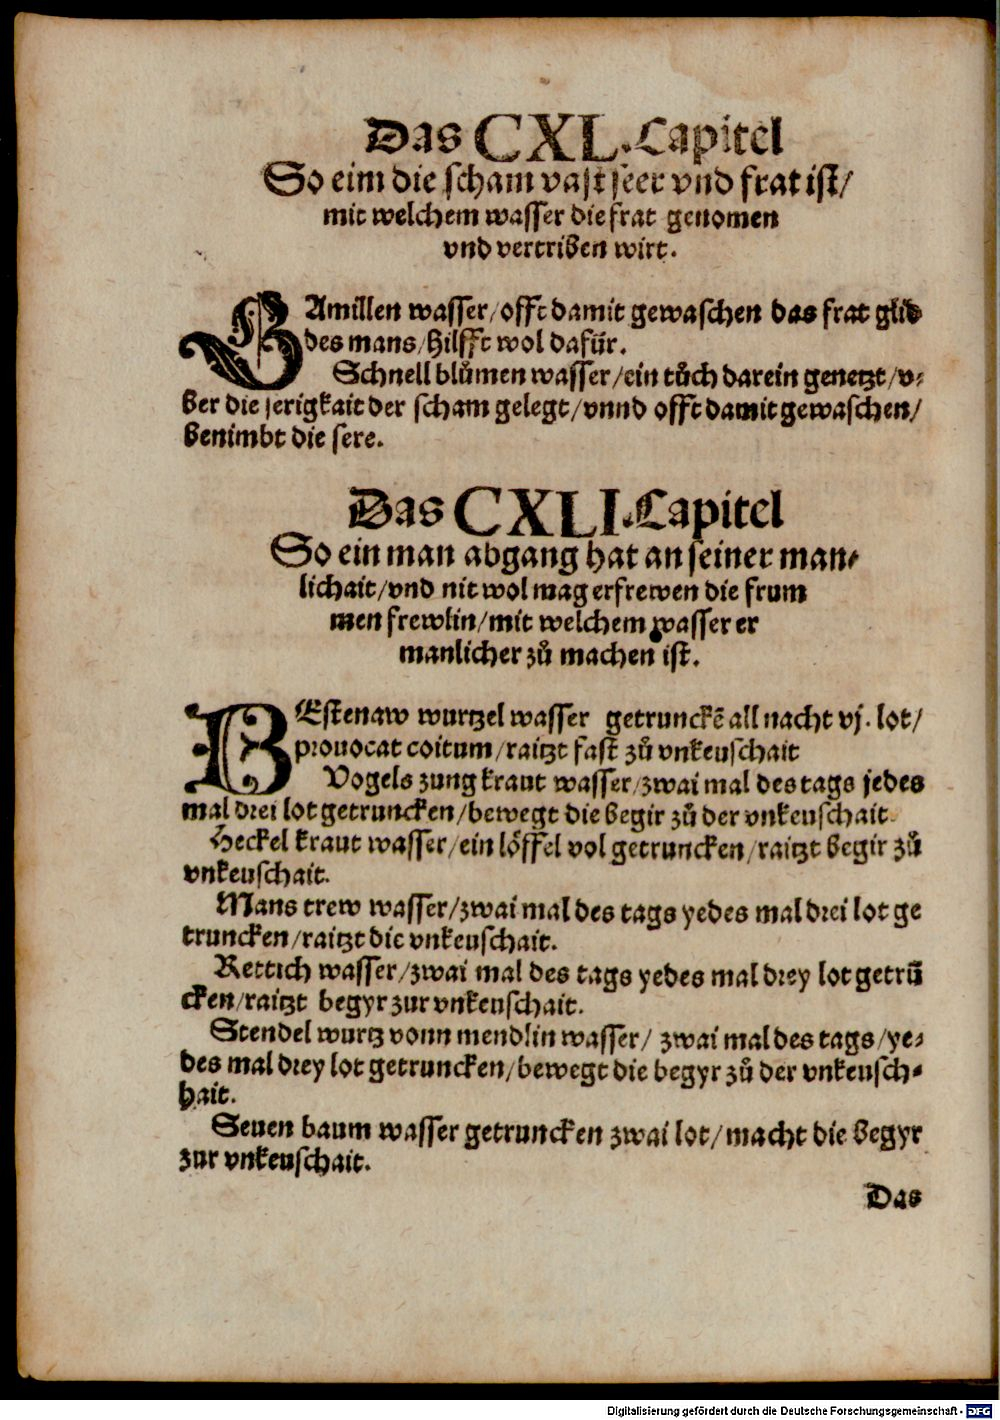 Das CXL. Capitel
So eim die scham vast seer vnd frat ist/
mit welchem wasser die frat genomen
vnd vertriben wirt.
GAmillen wasser/offt damit gewaschen das frat glid
des mans/hilfft wol dafür.
Schnell blůmen wasser/ein tůch darein genetzt/v⸗
ber die serigkait der scham gelegt/vnnd offt damit gewaschen/
benimbt die sere.
Das CXLI. Capitel
So ein man abgang hat an seiner man⸗
lichait/vnd nit wol mag erfrewen die frum
men frewlin/mit welchem wasser er
manlicher zů machen ist.
BEstenaw wurtzel wasser getrunckē all nacht vj. lot/
prouocat coitum/raitzt fast zů vnkeuschait
Vogels zung kraut wasser/zwai mal des tags jedes
mal drei lot getruncken/bewegt die begir zů der vnkeuschait.
Heckel kraut wasser/ein löffel vol getruncken/raitzt begir zů
vnkeuschait.
Mans trew wasser/zwai mal des tags yedes mal drei lot ge
truncken/raitzt die vnkeuschait.
Rettich wasser/zwai mal des tags yedes mal drey lot getrū
cken/raitzt begyr zur vnkeuschait.
Stendel wurtz vonn mendlin wasser/ zwai mal des tags/ye⸗
des mal drey lot getruncken/bewegt die begyr zů der vnkeusch⸗
hait.
Seuen baum wasser getruncken zwai lot/macht die begyr
zur vnkeuschait.
Das
Digitalisierung gefördert durch die Deutsche Forschungsgemeinschaft - DFG